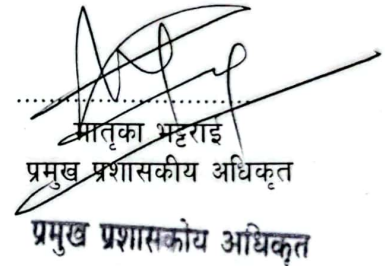 ..............................
मातृका भट्टराई
प्रमुख प्रशासकीय अधिकृत
प्रमुख प्रशासकीय अधिकृत